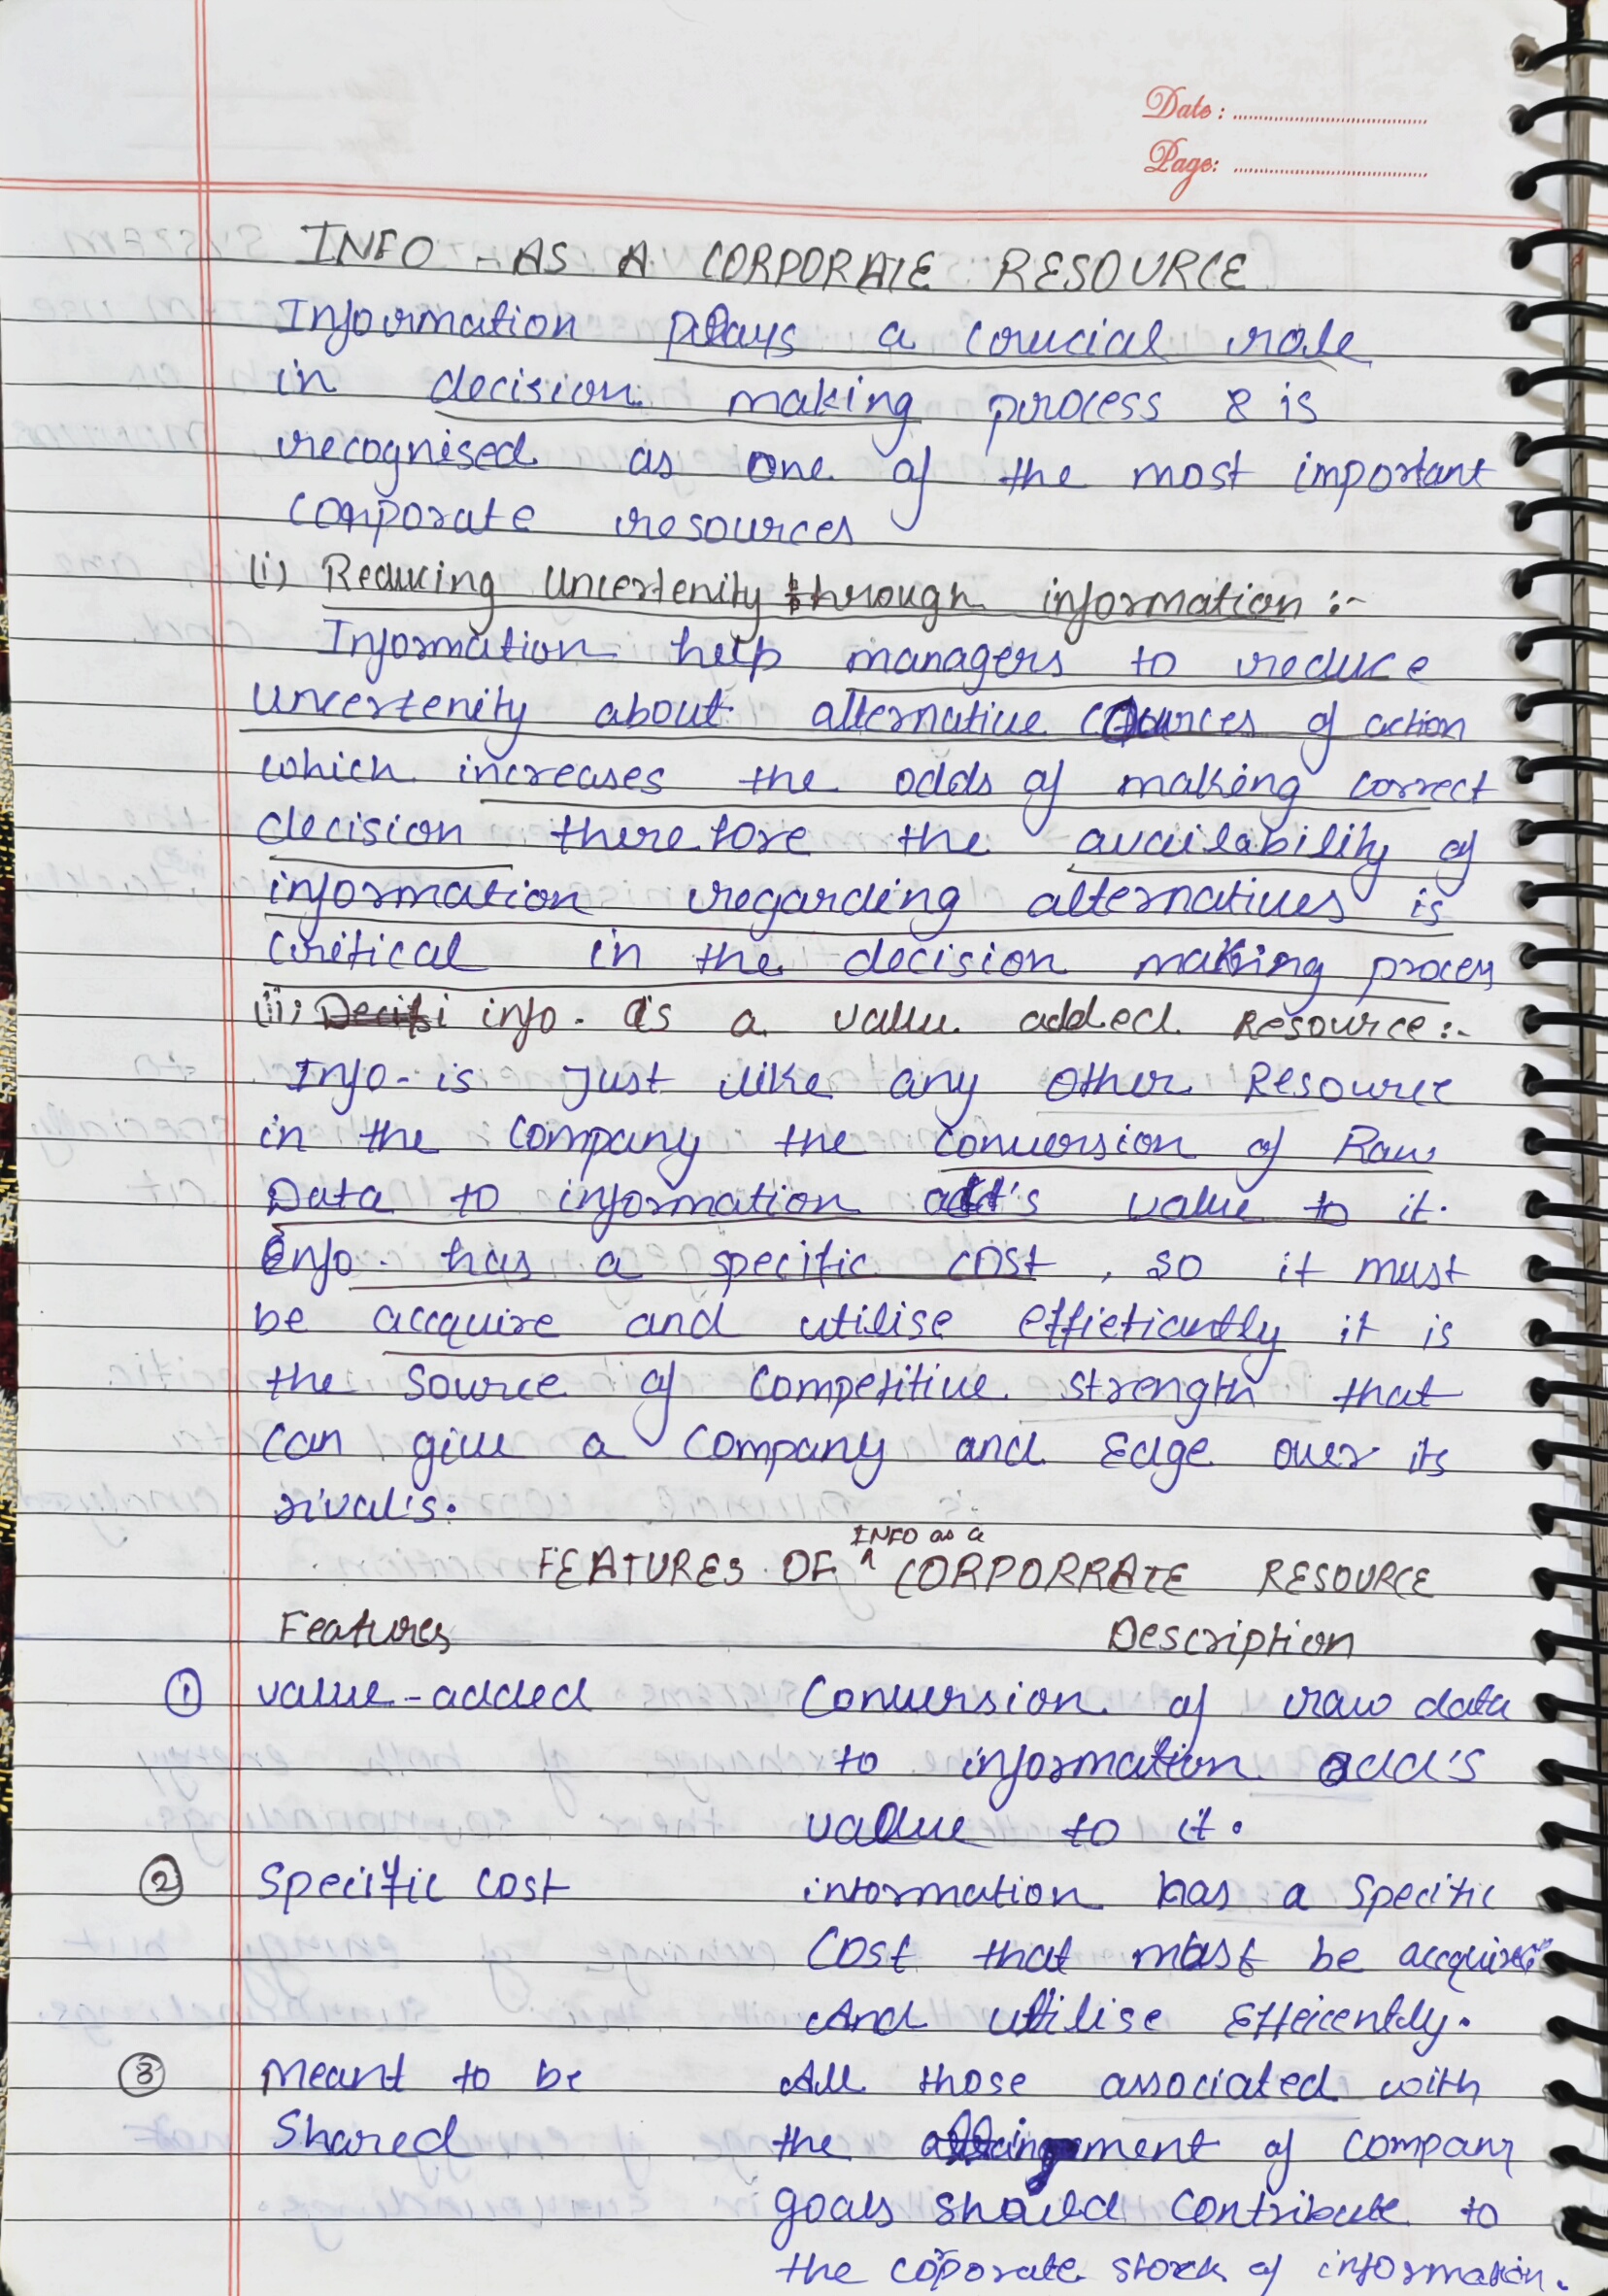 Date:
Page:
INFO - AS A CORPORATE RESOURCE
Information plays a crucial role
in decision making process & is
recognised as one of the most important
corporate resources
(i) Reducing Uncertenity through information :-
Information help managers to reduce
uncertenity about alternative cources of action
which increases the odds of making correct
decision therefore the availability of
information regarding alternatives is
critical in the decision making proces
(ii) info. as a value added Resource :-
Info- is Just like any other Resource
in the Company the conversion of Raw
Data to information add's value to it.
Info. has a specific cost, so it must
be accquire and utilise effieticantly it is
the source of competitive strength that
can give a company and Edge over its
rival's.
FEATURES OF INFO as a CORPORRATE RESOURCE
Features Description
① value-added Conversion of raw data
to information add's
value to it.
② Specific cost information has a specific
cost that must be accquire
And utilise Effeicently.
③ Meant to be All those associated with
Shared the of company
goals should contribute to
the coporate stock of information.